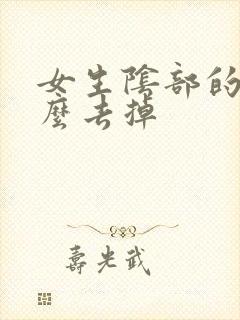 女生陰部的
麼去掉
壽光武